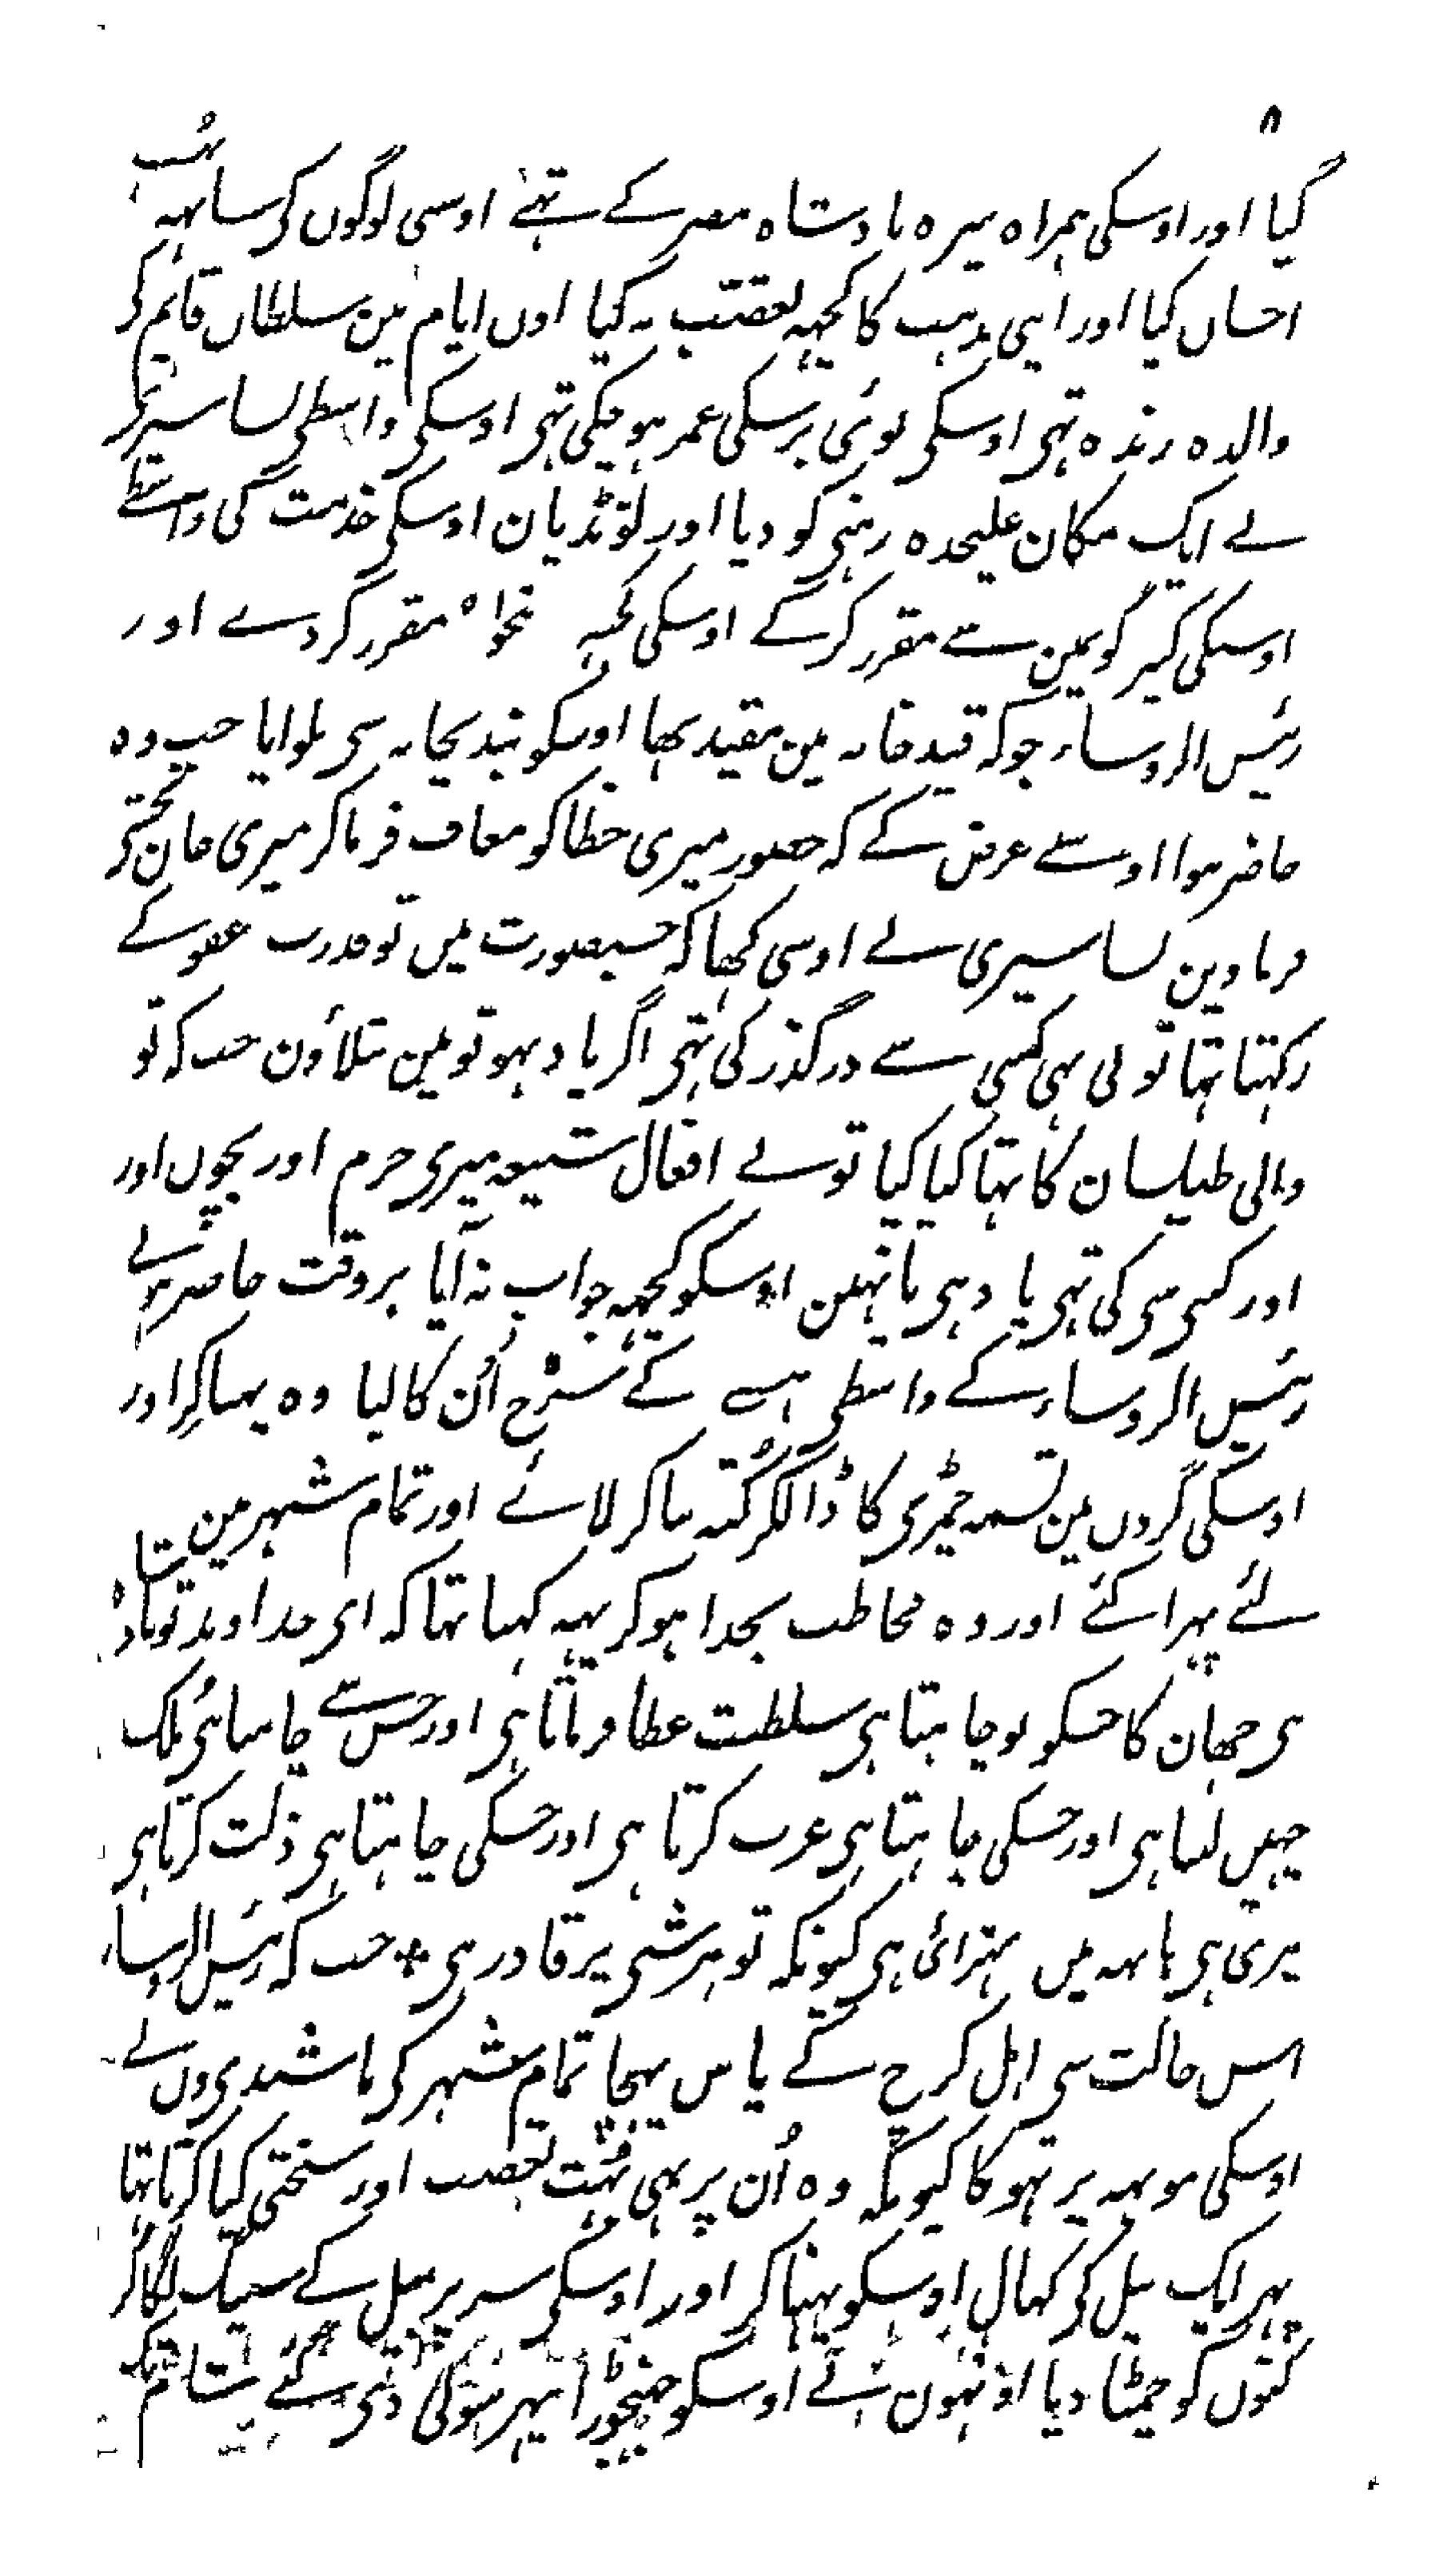 ۸
گیا اور اوسکی ہمراہ سیرہ بادشاہ مصر کے تہے اوسی لوگوں کی ساتہہ بہت
احسان کیا اور اپنی مذہب کا کچہہ تعصب نہ کیا اون ایام مین سلطان قایم کی
والدہ زندہ تہی اوسکی نوئی برسکی عمر ہو چکی تہی اوسکی واسطی بساسیری
نے ایک مکان علیحدہ رہنی کو دیا اور لونڈیان اوسکی خدمت کی واسطے
اوسکی کبیر گویمین سے مقرر کرکے اوسکی کچہہ تنخواہ مقرر کر دے اور
رئیس الروساء جو کہ قید خانہ مین مقید تہا اوسکو بندیخانہ سی بلوایا جب وہ
حاضر ہوا اوسنے عرض کے کہ حضور میری خطا کو معاف فرما کر میری جان بخشی
فرما دین بساسیری نے اوسی کہا کہ جسصورت میں تو قدرت عفو کے
رکہتا تہا تو نی بہی کسی سے درگذر کی تہی اگر یاد ہو تو مین بتلاؤن جب کہ تو
والی طیلسان کا تہا کیا کیا تونے افعال شنیعہ میری حرم اور بچوں اور
اور کسی سی کی تہی یاد ہی یا نہین اوسکو کچہہ جواب نہ آیا بروقت حاضر ہونے
رئیس الروساء کے واسطی ہسے کے سرخ اُن کا لبا وہ پہنا کر اور
اوسکی گردن مین تسمہ چمڑی کا ڈالکر کتہ بنا کر لائے اور تمام شہر مین
لئے پہرا کئے اور وہ مخاطب بخدا ہوکر یہہ کہتا تہا کہ ای خداوند تو بادشاہ
ہی جہان کا جسکو تو چاہتا ہی سلطنت عطا فرماتا ہی اور جس سے چاہتا ہی ملک
چہین لیتا ہی اور جسکی چاہتا ہی عزت کرتا ہی اور جسکی چاہتا ہی ذلت کرتا ہی
تیری ہی ہاتہہ میں بہترائی ہی کیونکہ تو ہر شی پر قادر ہی * جب کہ رئیس الروساء
اس حالت سی اہل کرخ کے پاس پہنچا تمام شہر کی باشندی ون نے
اوسکی مونہہ پر تہوکا کیونکہ وہ اُن پر بہی بہت تعصب اور سختی کیا کرتا تہا
پہر ایک بیل کی کہال اوسکو پہنا کر اور اوسکی سر پر بیل کے سینگ لگا کر
کتوں کو چمٹا دیا اونہون نے اوسکو جہنجوڑا پہر سولی دی گئے شام تک